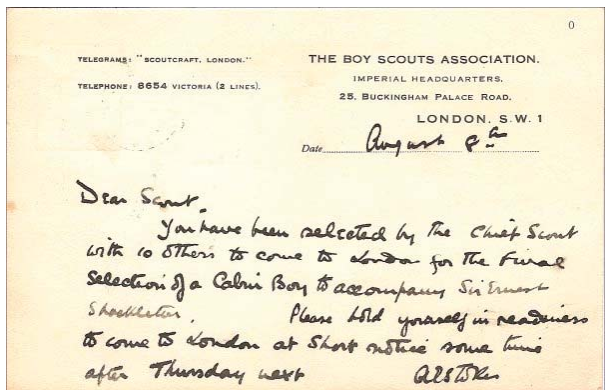 0
TELEGRAMS: "SCOUTCRAFT, LONDON."
TELEPHONE: 8654 VICTORIA (2 LINES).
THE BOY SCOUTS ASSOCIATION.
IMPERIAL HEADQUARTERS.
25, BUCKINGHAM PALACE ROAD,
LONDON, S.W. 1
Date August 8th
Dear Scout,
You have been selected by the Chief Scout
with 10 others to come to London for the Final
Selection of a Cabin Boy to accompany Sir Ernest
Shackleton. Please hold yourself in readiness
to come to London at Short notice some time
after Thursday next